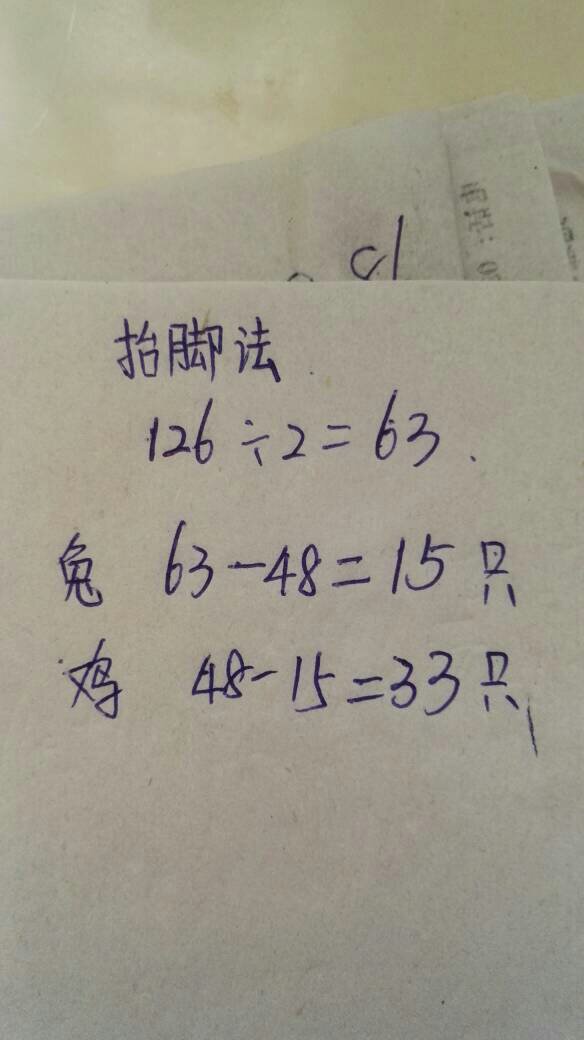 抬脚法
126÷2=63.
兔 63-48=15只
鸡 48-15=33只